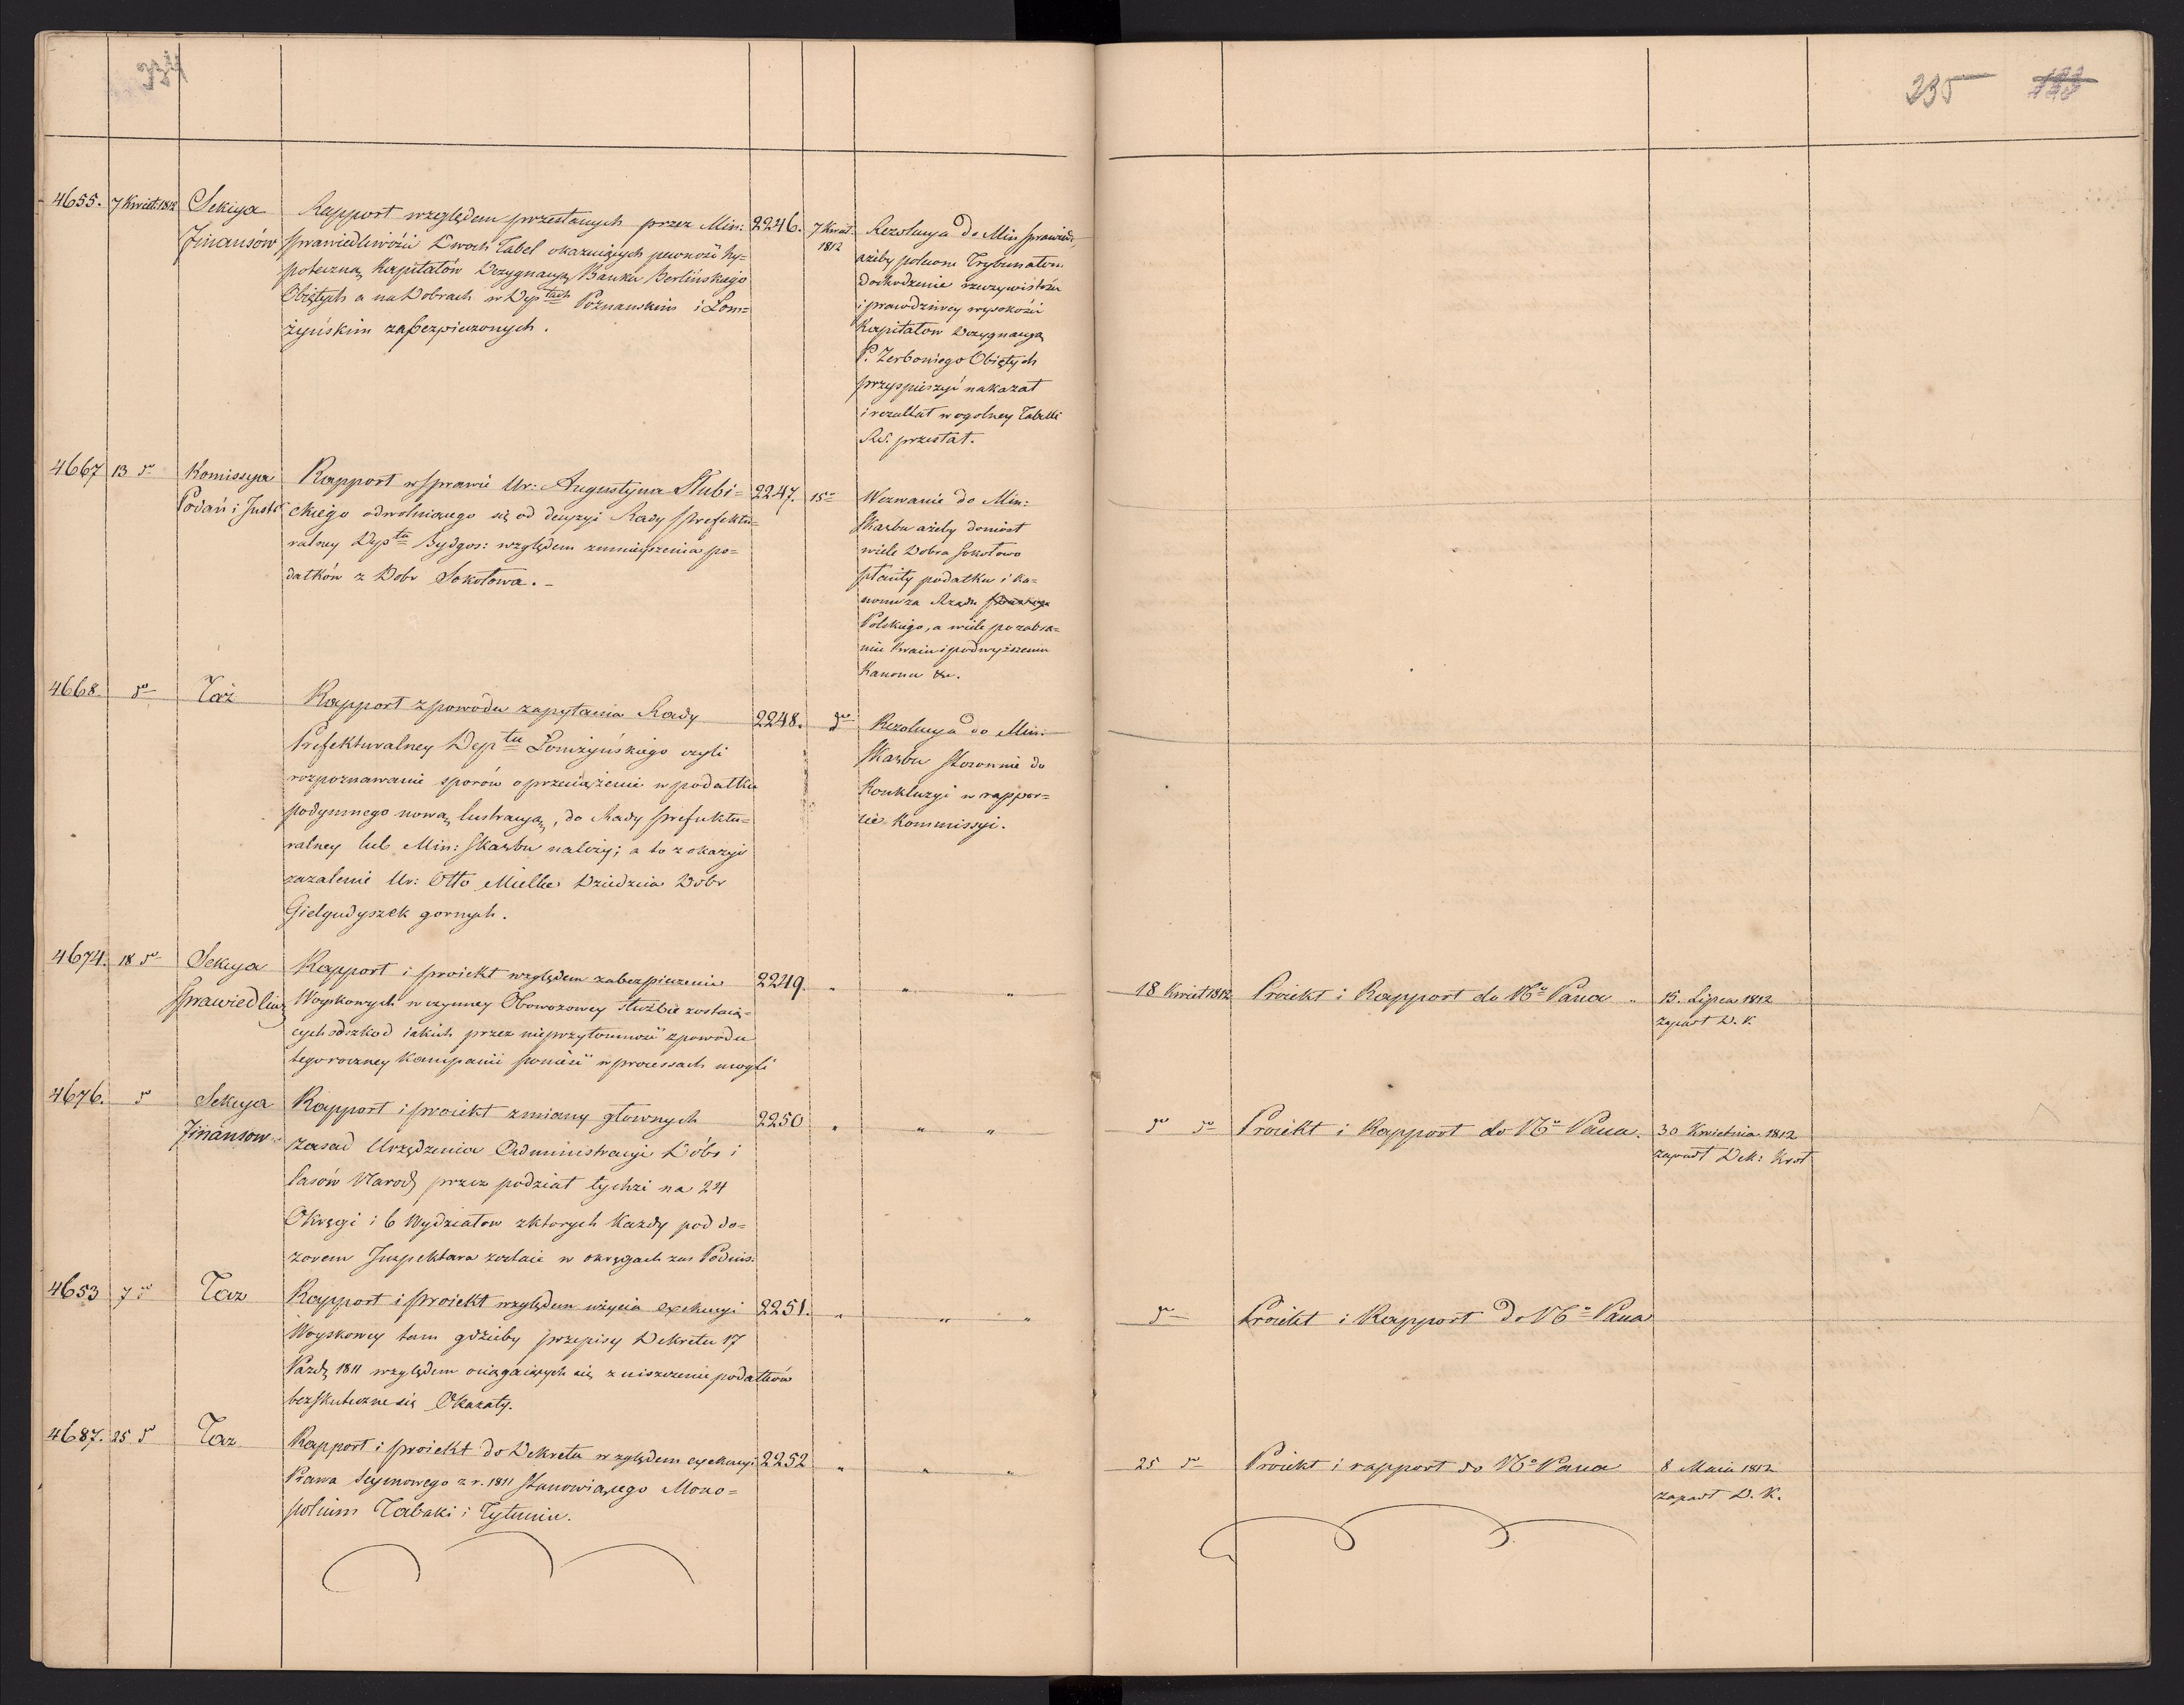 334
235
4655. 7 Kwiet: 1812 Sekcya Finansów
Rapport względem przesłanych przez Min:
sprawiedliwości Dwoch Tabel okazuiących pewność hy=
poteczną Kapitałów Dezygnacyą Banku Berlińskiego
Obiętych a na Dobrach w Dep tach Poznańskim i Łom=
żyńskim zabezpieczonych.
2246. 7 Kwiet. 1812
Rezolucya do Min sprawied:
ażeby polecone Trybunałom
Dochodzenie rzeczywistości
i prawdziwey wysokości
Kapitałow Dezygnacyą
P. Zerboniego Obiętych
przyspieszyć nakazał
i rezultat w ogolney Tabelli
RS. przesłał.
4667 13 do Komissya Podań i Instr
Rapport w sprawie Ur: Augustyna Słubi=
ckiego odwołuiącego się od decyzyi Rady prefektu=
ralney Dep tu Bydgos: względem zmnieyszenia po=
datków z Dobr Sokołowa. -
2247. 15 do
Wezwanie do Min:
Skarbu ażeby doniosł
wiele Dobra Sokołowo
płaciły podatku i ka=
nonu za Rządu
Polskiego, a wiele po zabra=
niu Kraiu i podwyższeniu
Kanonu &c.
4668. do Taż
Rapport z powodu zapytania Rady
Prefekturalney Dep tu Łomżyńskiego czyli
rozpoznawanie sporów o przeciążenie w podatku
podymnego nową lustracyą, do Rady prefektu=
ralney lub Min: Skarbu należy; a to z okazyi
zażalenie Ur: Otto Mielke Dziedzica Dobr
Giełgudyszek gornych.
2248. do
Rezolucya do Min:
Skarbu stosownie do
Konkluzyi w rappor=
cie Kommissyi.
4674. 18 do Sekcya Sprawiedliw
Rapport i proiekt względem zabezpieczenia
Woyskowych w czynney Obozowey służbie zostaią=
cych od szkod iakich przez nieprzytomność z powodu
tegoroczney kampanii ponieść w processach mogli
2249. " " "
18 Kwiet 1812 Proiekt i Rapport do NGo Pana " 15. Lipca 1812
zapadł D. K.
4676. do Sekcya Finansow
Rapport i proiekt zmiany głownych
zasad Urządzenia Administracyi Dóbr i
lasów Narod. przez podział tychże na 24
Okręgi i 6 Wydziałow z ktorych Każdy pod do=
zorem Inspektora zostaie w okręgach zas Podins:
2250 " " "
do do Proiekt i Rapport do NGo Pana. 30 Kwietnia 1812
zapadł Dek: Krol
4653 7 do Taz
Rapport i proiekt względem użycia exekucyi
Woyskowey tam gdzieby przepisy Dekretu 17
Pazdz 1811 względem ociągaiących się z uiszczenie podatków
bezskuteczne się Okazały.
2251. " " "
do Proiekt i Rapport do NGo Pana
4687. 25 do Taz
Rapport i proiekt do Dekretu względem exekucyi
Prawa Seymowego z r. 1811 stanowiącego Mono=
polium Tabaki i Tytuniu.
2252 " " "
25 do Proiekt i rapport do NGo Pana 8 Maia 1812
zapadł D. K.